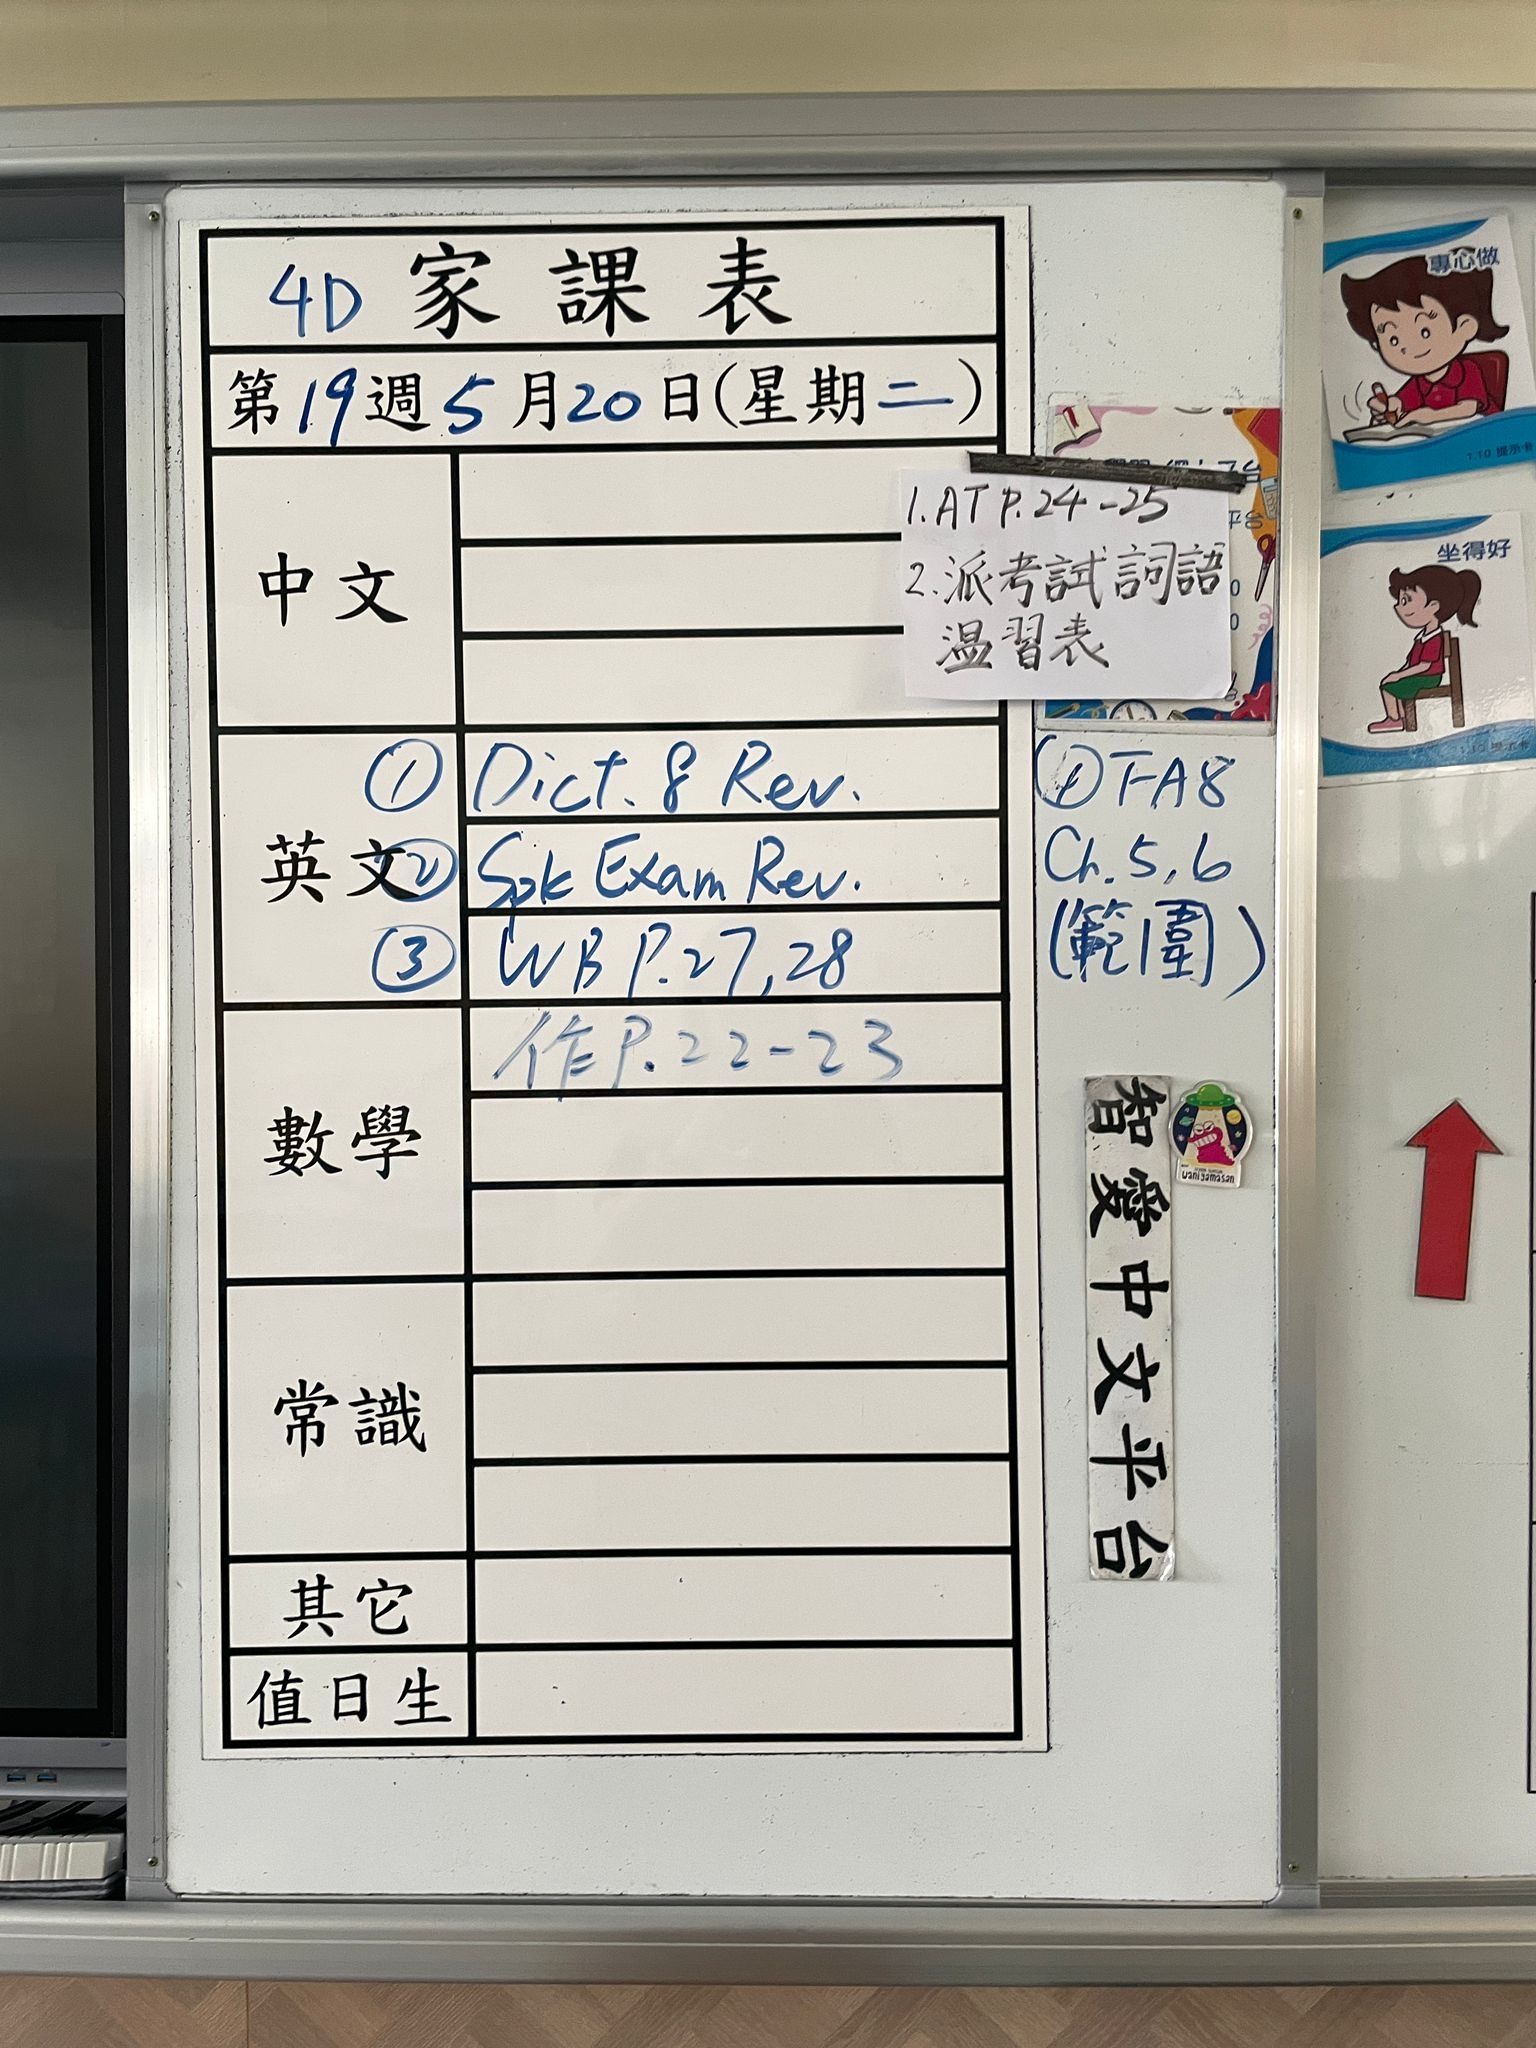 4D 家課表
第19週5月20日(星期二)
中文
1. AT P.24-25
2. 派考試詞語
温習表
英文
① Dict. 8 Rev.
② Spk Exam Rev.
③ WB P.27,28
④ TA8
Ch. 5, 6
(範圍)
數學
作P.22-23
常識
其它
值日生
智愛中文平台
waniyamasan
專心做
1.10 提示卡
坐得好
1.10 提示卡